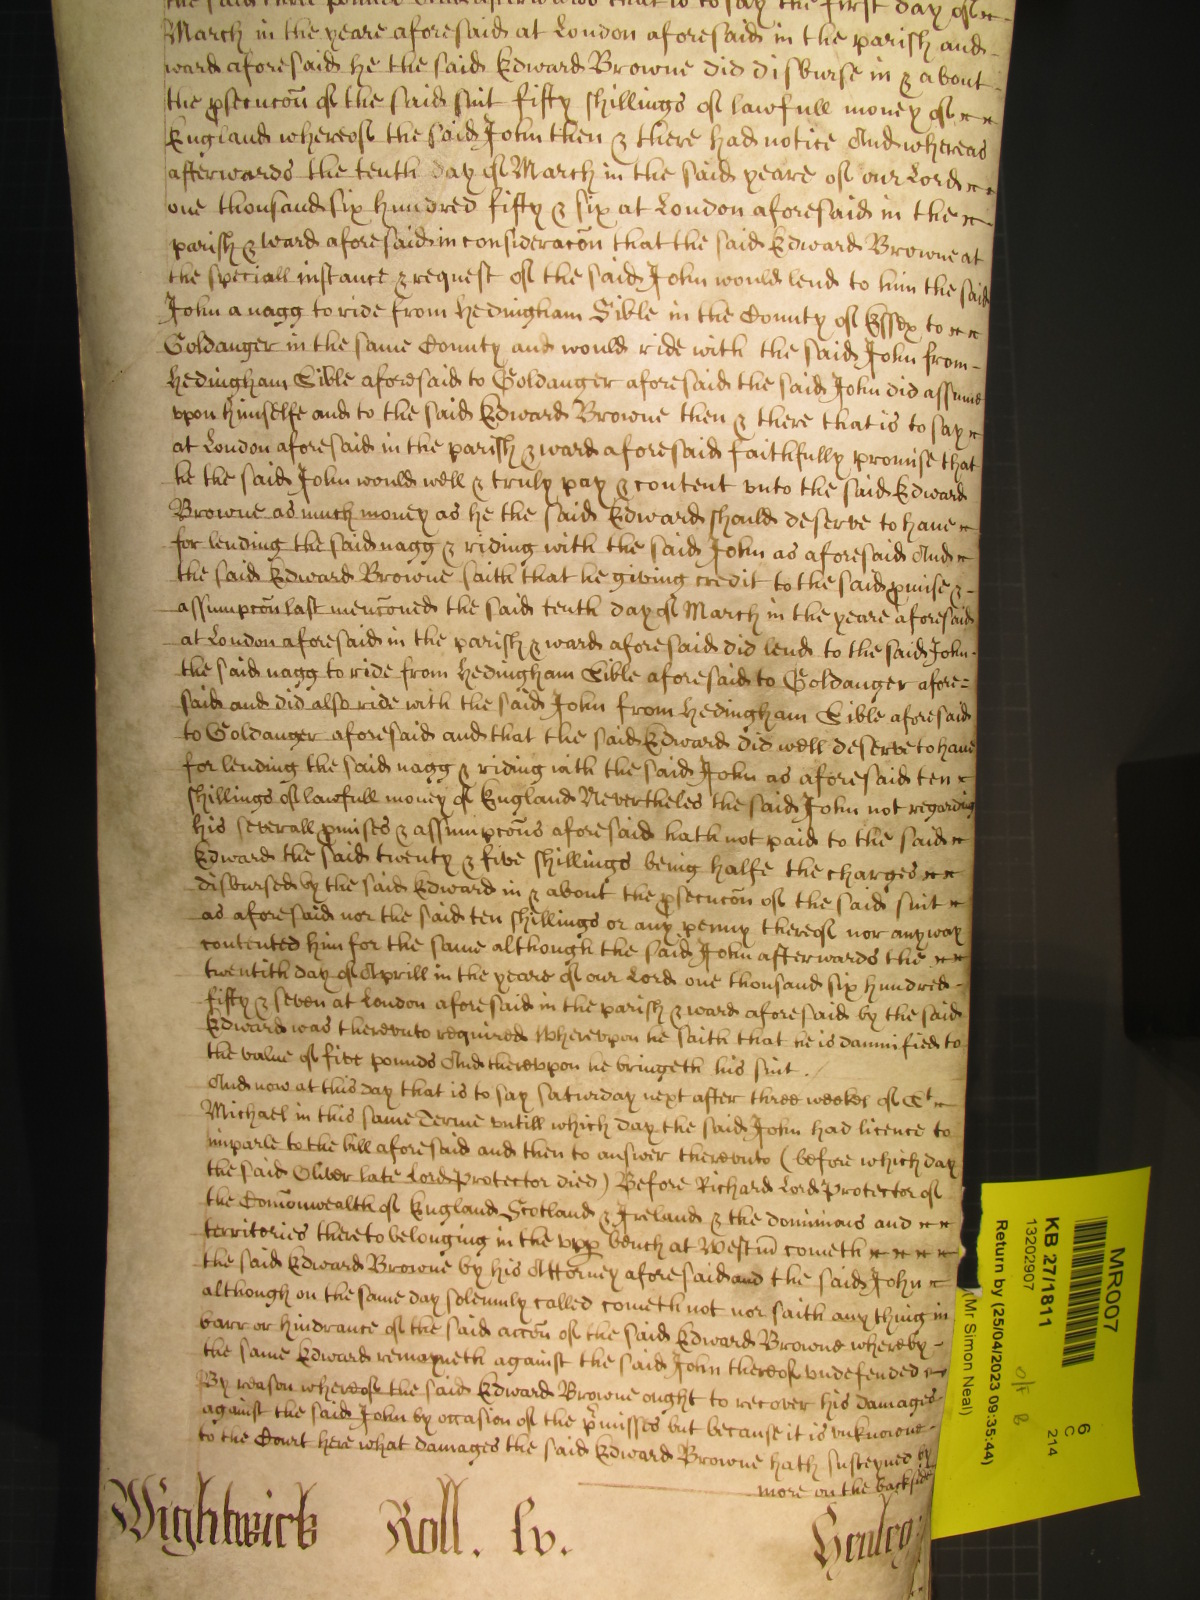 the said three pounds And afterwards that is to say the first day of
March in the yeare aforesaid at London aforesaid in the parish and
ward aforesaid he the said Edward Browne did disburse in & about
the psecucōn of the said suit fifty shillings of lawfull money of
England whereof the said John then & there had notice And whereas
afterwards the tenth day of March in the said yeare of our Lord
one thousand six hundred fifty & six at London aforesaid in the
parish & ward aforesaid in consideracōn that the said Edward Browne at
the speciall instance & request of the said John would lend to him the said
John a nagg to ride from Hedingham Sible in the County of Essex to
Goldanger in the same County and would ride with the said John from
Hedingham Sible aforesaid to Goldanger aforesaid the said John did assume
vpon himselfe and to the said Edward Browne then & there that is to say
at London aforesaid in the parish & ward aforesaid faithfully promise that
he the said John would well & truly pay & content vnto the said Edward
Browne as much money as he the said Edward should deserve to haue
for lending the said nagg & riding with the said John as aforesaid And
the said Edward Browne saith that he giving credit to the said pmise &
assumpcōn last mencōned the said tenth day of March in the yeare aforesaid
at London aforesaid in the parish & ward aforesaid did lend to the said John
the said nagg to ride from Hedingham Sible aforesaid to Goldanger afore=
said and did also ride with the said John from Hedingham Sible aforesaid
to Goldanger aforesaid and that the said Edward did well deserve to haue
for lending the said nagg & riding with the said John as aforesaid ten
shillings of lawfull money of England Nevertheles the said John not regarding
his severall pmises & assumpcōns aforesaid hath not paid to the said
Edward the said twenty & five shillings being halfe the charges
disbursed by the said Edward in & about the psecucōn of the said suit
as aforesaid nor the said ten shillings or any penny thereof nor any way
contented him for the same although the said John afterwards the
twentith day of Aprill in the yeare of our Lord one thousand six hundred
fifty & seven at London aforesaid in the parish & ward aforesaid by the said
Edward was therevnto required Wherevpon he saith that he is damnified to
the value of five pounds And therevpon he bringeth his suit.
And now at this day that is to say Saturday next after three weekes of St
Michael in this same Terme vntill which day the said John had licence to
imparle to the bill aforesaid and then to answer therevnto (before which day
the said Oliver late Lord Protector died) Before Richard Lord Protector of
the Comōnwealth of England Scotland & Ireland & the dominions and
territories thereto belonging in the vpp bench at Westm̄ cometh
the said Edward Browne by his Attorney aforesaid and the said John
although on the same day solemnly called cometh not nor saith any thing in
barr or hindrance of the said accōn of the said Edward Browne whereby
the same Edward remayneth against the said John thereof vndefended
By reason whereof the said Edward Browne ought to recover his damages
against the said John by occasion of the pmisses but because it is vnknowne
to the Court here what damages the said Edward Browne hath susteyned by
more on the backside
Wightwick Roll. lv. Henley
MR007
KB 27/1811
13202907
Return by (25/04/2023 09:35:44)
(Mr Simon Neal)
6
C
214